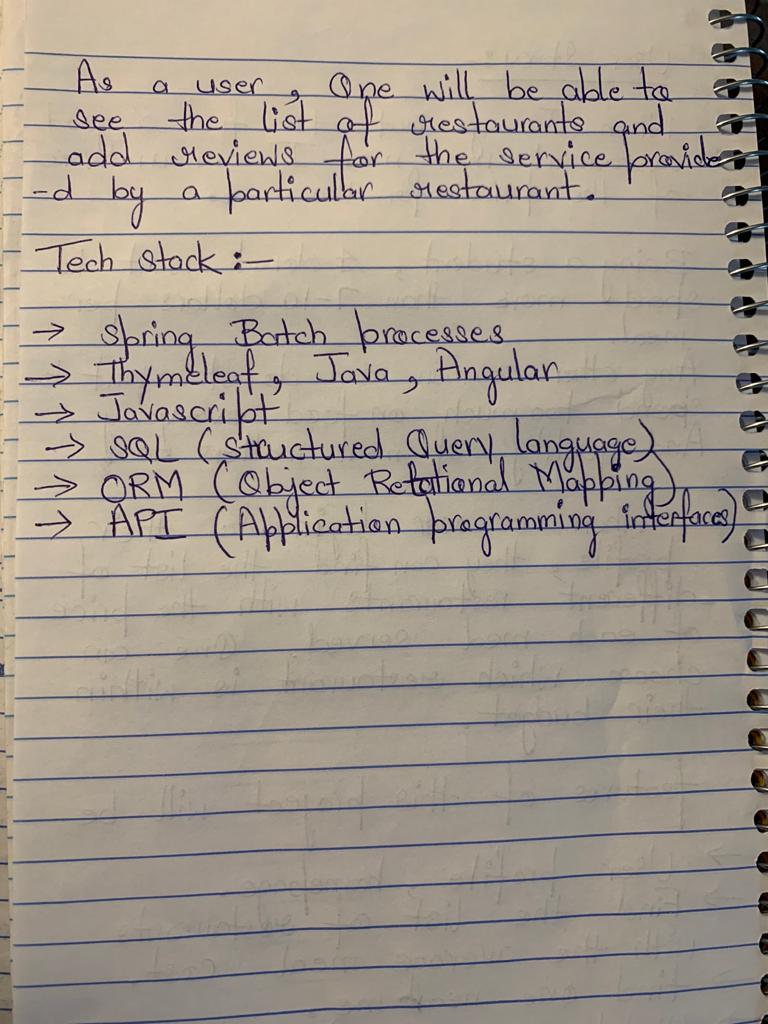 As a user, One will be able to
see the list of restaurants and
add reviews for the service provide
-d by a particular restaurant.
Tech stack :-
→ Spring Batch processes
→ Thymeleaf, Java, Angular
→ Javascript
→ SQL (Structured Query language)
→ ORM (Object Relational Mapping)
→ API (Application programming interfaces)